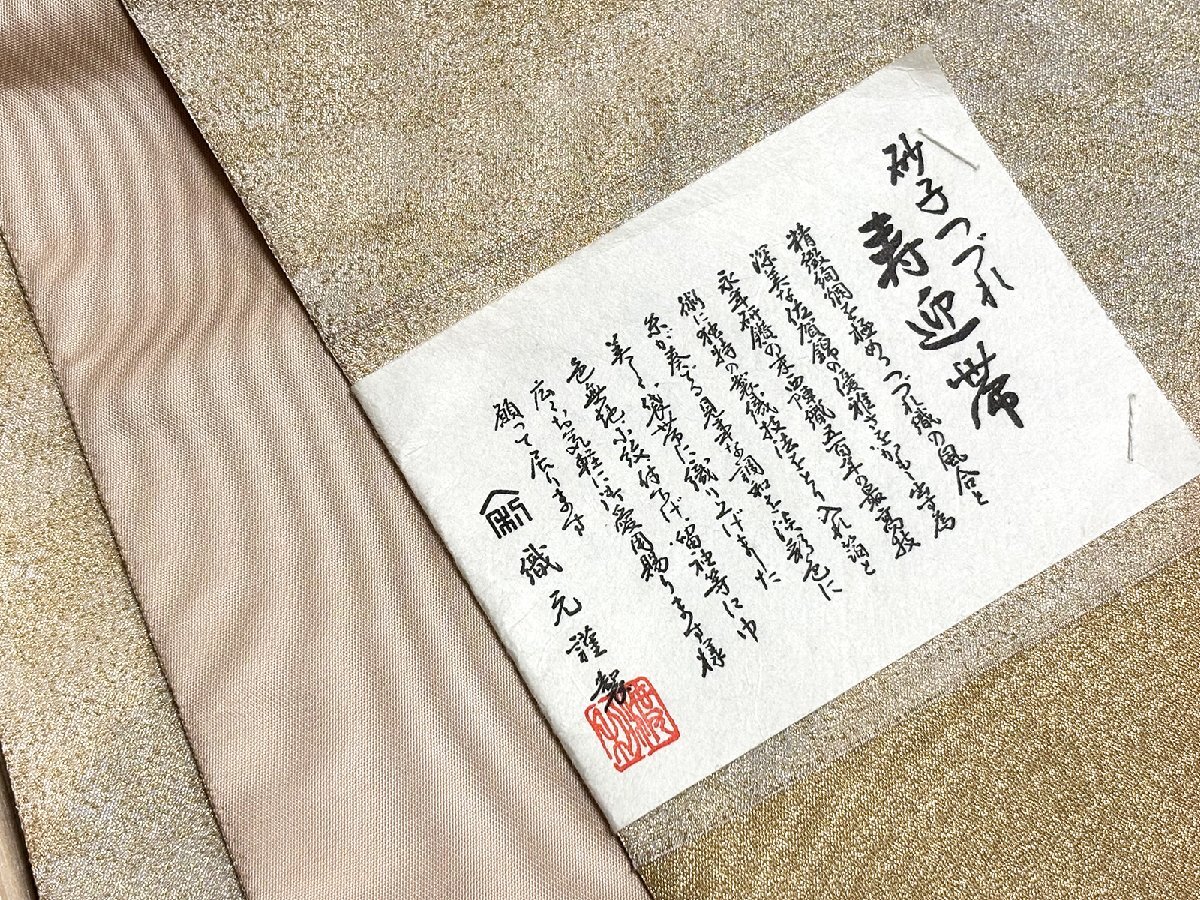 砂子つづれ
寿迎帯
精緻絢爛を極めるつづれ織の風合と
深美な佐賀錦の優雅さをかもし出す為
永年研鑚の末西陣織五百年の最高技
術に独特の製織技法をとり入れ箔と
糸が奏でる見事な調和を淡彩色に
美しく袋帯に織り上げました
色無地、小紋、付下げ、留袖等にゆ
広くお気軽に御愛用賜ります様
願って居ります
織元謹製